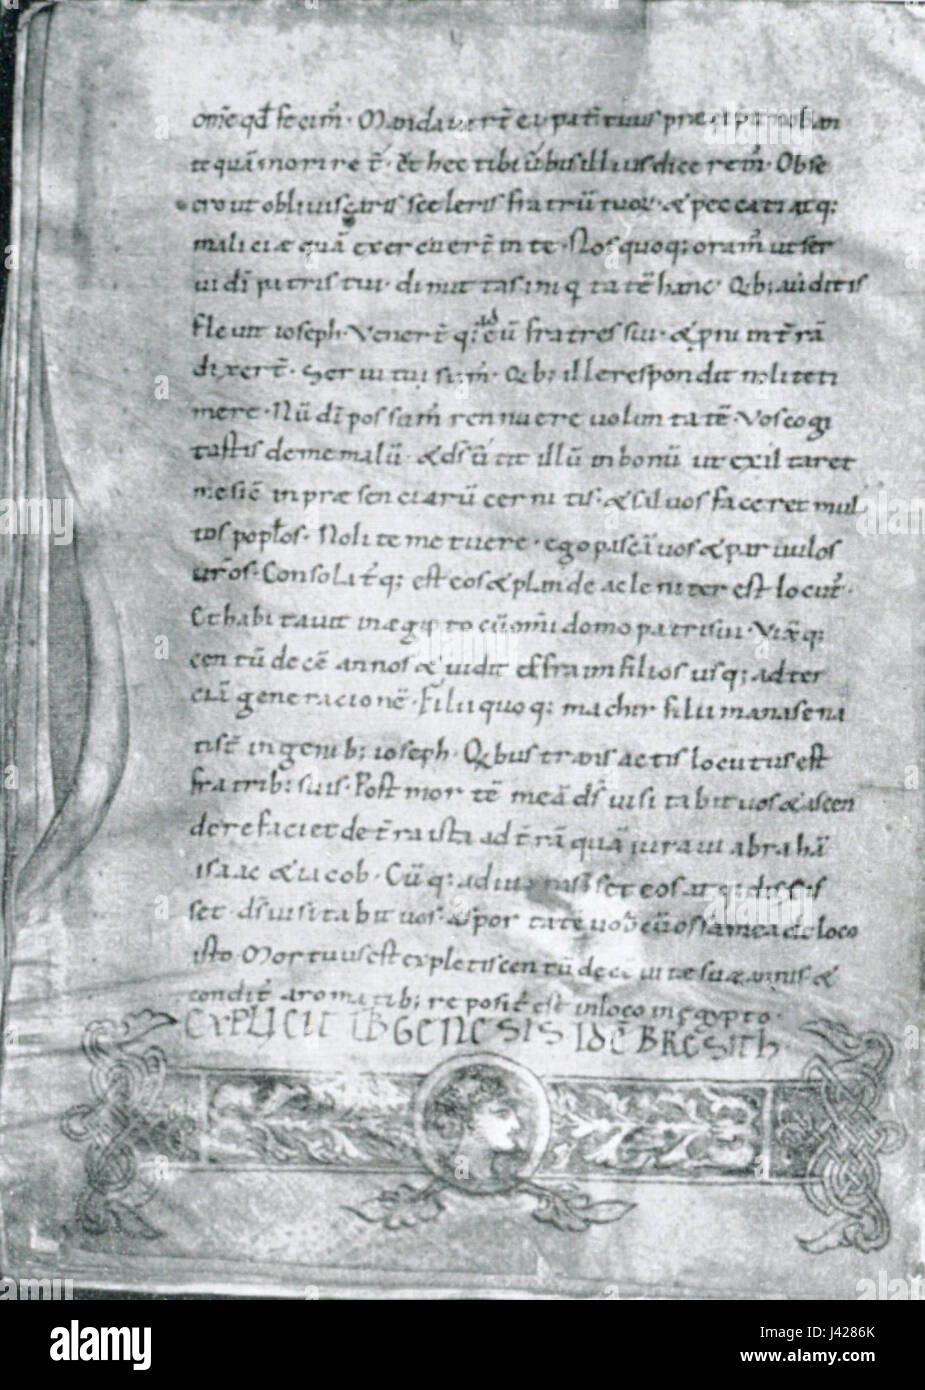 om̄e qd̄ fecim̄. Mandaver̄t ei pat̄ tuus præcipit nobis an
te quā morire t̄. Et hec tibi ūbis illius dicerem̄. Obse
cro ut obliviscaris sceleris fratrū tuoꝝ. & peccati atq;
maliciæ quā exercuer̄t in te. Nos quoq; oram̄ ut ser
vi dī patris tui. dimittas iniqtatē hanc. Qb; auditis
flevit ioseph. Vener̄t q; ad eū fratres sui. & p̄ni in t̄rā
dixer̄t. Servi tui sum̄. Qb; ille respondit nolite ti
mere. Nū dī possum̄ rennuere voluntatē. Vos cogi
tastis de me malū. & ds̄ ūtit illū in bonū ut exaltaret
me sic̄ in præsenciarū cernitis. & salvos faceret mul
tos poplos. Nolite metuere. ego pascā vos & parvulos
vr̄os. Consolat̄q; est eos & blande ac leniter est locut̄.
Et habitavit in ægypto cū om̄i domo patris sui. Vixq;
centū decē annos & vidit effraim filios usq; ad ter
ciā generacionē. Filii quoq; machir filii manase na
ti st̄ in genib; ioseph. Qbus transactis locutus est
fratrib; suis. Post mortē meā ds̄ visitabit vos & ascen
dere faciet de t̄ra ista ad t̄rā quā iuravi abrahā
isaac & iacob. Cūq; adiurasset eos atq; dixis
set. ds̄ visitabit vos. asportate vobcū ossa mea de loco
isto. Mortuus est expletis centū decē vitæ suæ annis &
condit̄ aromatib; reposit̄ est in loco in ęgypto.
EXPLICIT LIB GENESIS IDĒ BRESITH
a
alamy stock photo
J4286K
www.alamy.com